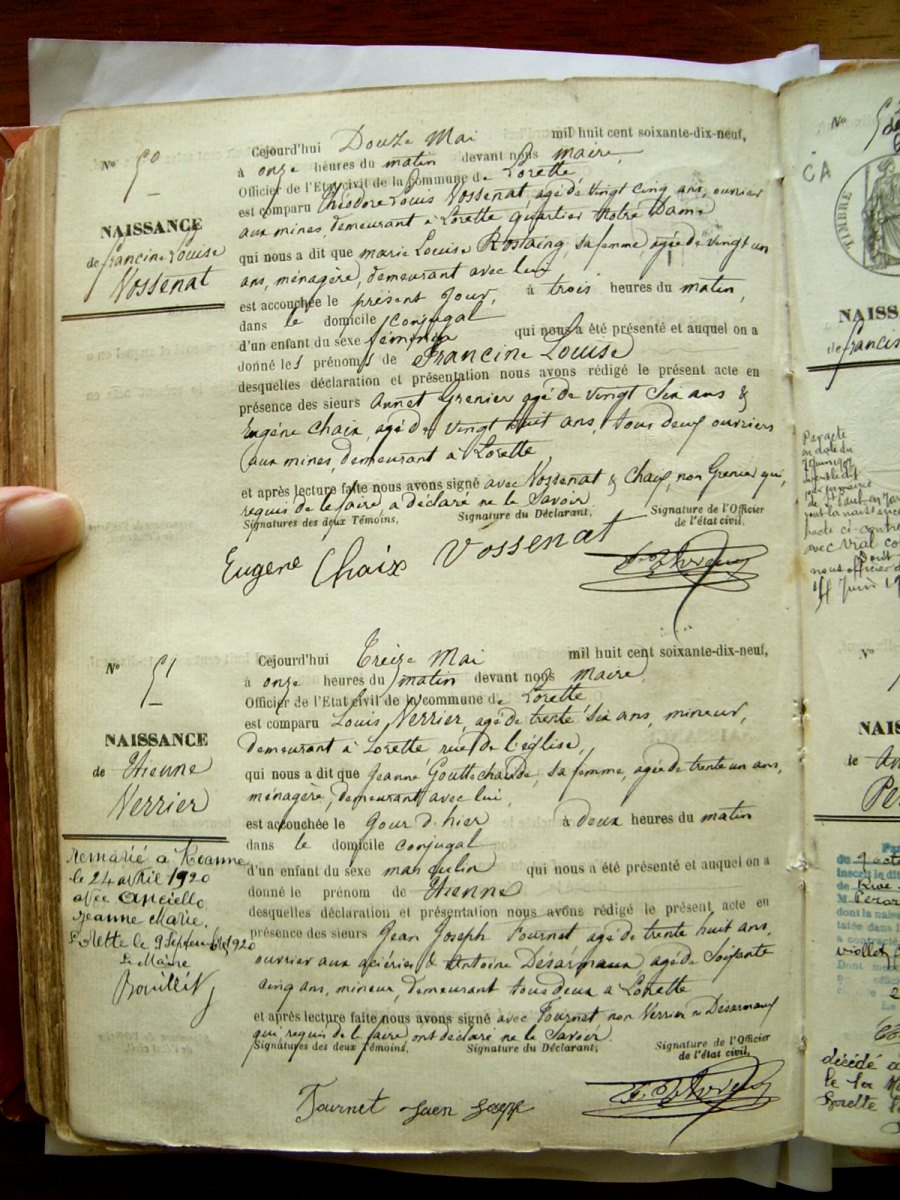 N° 50
NAISSANCE
de Francine Louise
Vossenat
Cejourd'hui Douze Mai mil huit cent soixante-dix-neuf,
à onze heures du matin devant nous maire,
Officier de l'Etat civil de la Commune de Lorette
est comparu Théodore Louis Vossenat, âgé de vingt cinq ans, ouvrier
aux mines, demeurant à Lorette quartier Notre Dame
qui nous a dit que marie Louise Rostaing, sa femme, agée de vingt un
ans, ménagère, demeurant avec lui
est accouchée le présent jour, à trois heures du matin,
dans le domicile conjugal
d'un enfant du sexe féminin qui nous a été présenté et auquel on a
donné les prénoms de Francine Louise
desquelles déclaration et présentation nous avons rédigé le présent acte en
présence des sieurs Annet Grenier agé de vingt six ans &
Eugène Chaix, agé de vingt huit ans, tous deux ouvriers
aux mines, demeurant à Lorette
et après lecture faite nous avons signé avec Vossenat & Chaix, non Grenier qui,
requis de le faire, a déclaré ne le savoir
Signatures des deux Témoins, Signature du Déclarant, Signature de l'Officier
de l'état civil.
Eugène Chaix Vossenat
N° 51
NAISSANCE
de Etienne
Verrier
Remarié à Roanne
le 24 avril 1920
avec Anciello
Jeanne Marie.
Lorette le 9 Septembre 1920
Le Maire
Cejourd'hui Treize Mai mil huit cent soixante-dix-neuf,
à onze heures du matin devant nous maire,
Officier de l'Etat civil de la commune de Lorette
est comparu Louis Verrier, agé de trente six ans, mineur,
demeurant à Lorette rue de l'église,
qui nous a dit que Jeanne Gouttechaude, sa femme, agée de trente un ans,
ménagère, demeurant avec lui,
est accouchée le jour d'hier à deux heures du matin
dans le domicile conjugal
d'un enfant du sexe masculin qui nous a été présenté et auquel on a
donné le prénom de Etienne
desquelles déclaration et présentation nous avons rédigé le présent acte en
présence des sieurs Jean Joseph Fournet agé de trente huit ans,
ouvrier aux aciéries & Antoine Désarmaux agé de soixante
cinq ans, mineur, demeurant tous deux à Lorette
et après lecture faite nous avons signé avec Fournet non Verrier ni Désarmaux
qui requis de le faire ont déclaré ne le savoir.
Signatures des deux Témoins, Signature du Déclarant, Signature de l'Officier
de l'état civil,
Fournet Jaen Josepe
N°
CA
TIMBRE
NAISS
de Francis
Par acte
N°
NAISS
Per
décédé à
le 1er
Lorette